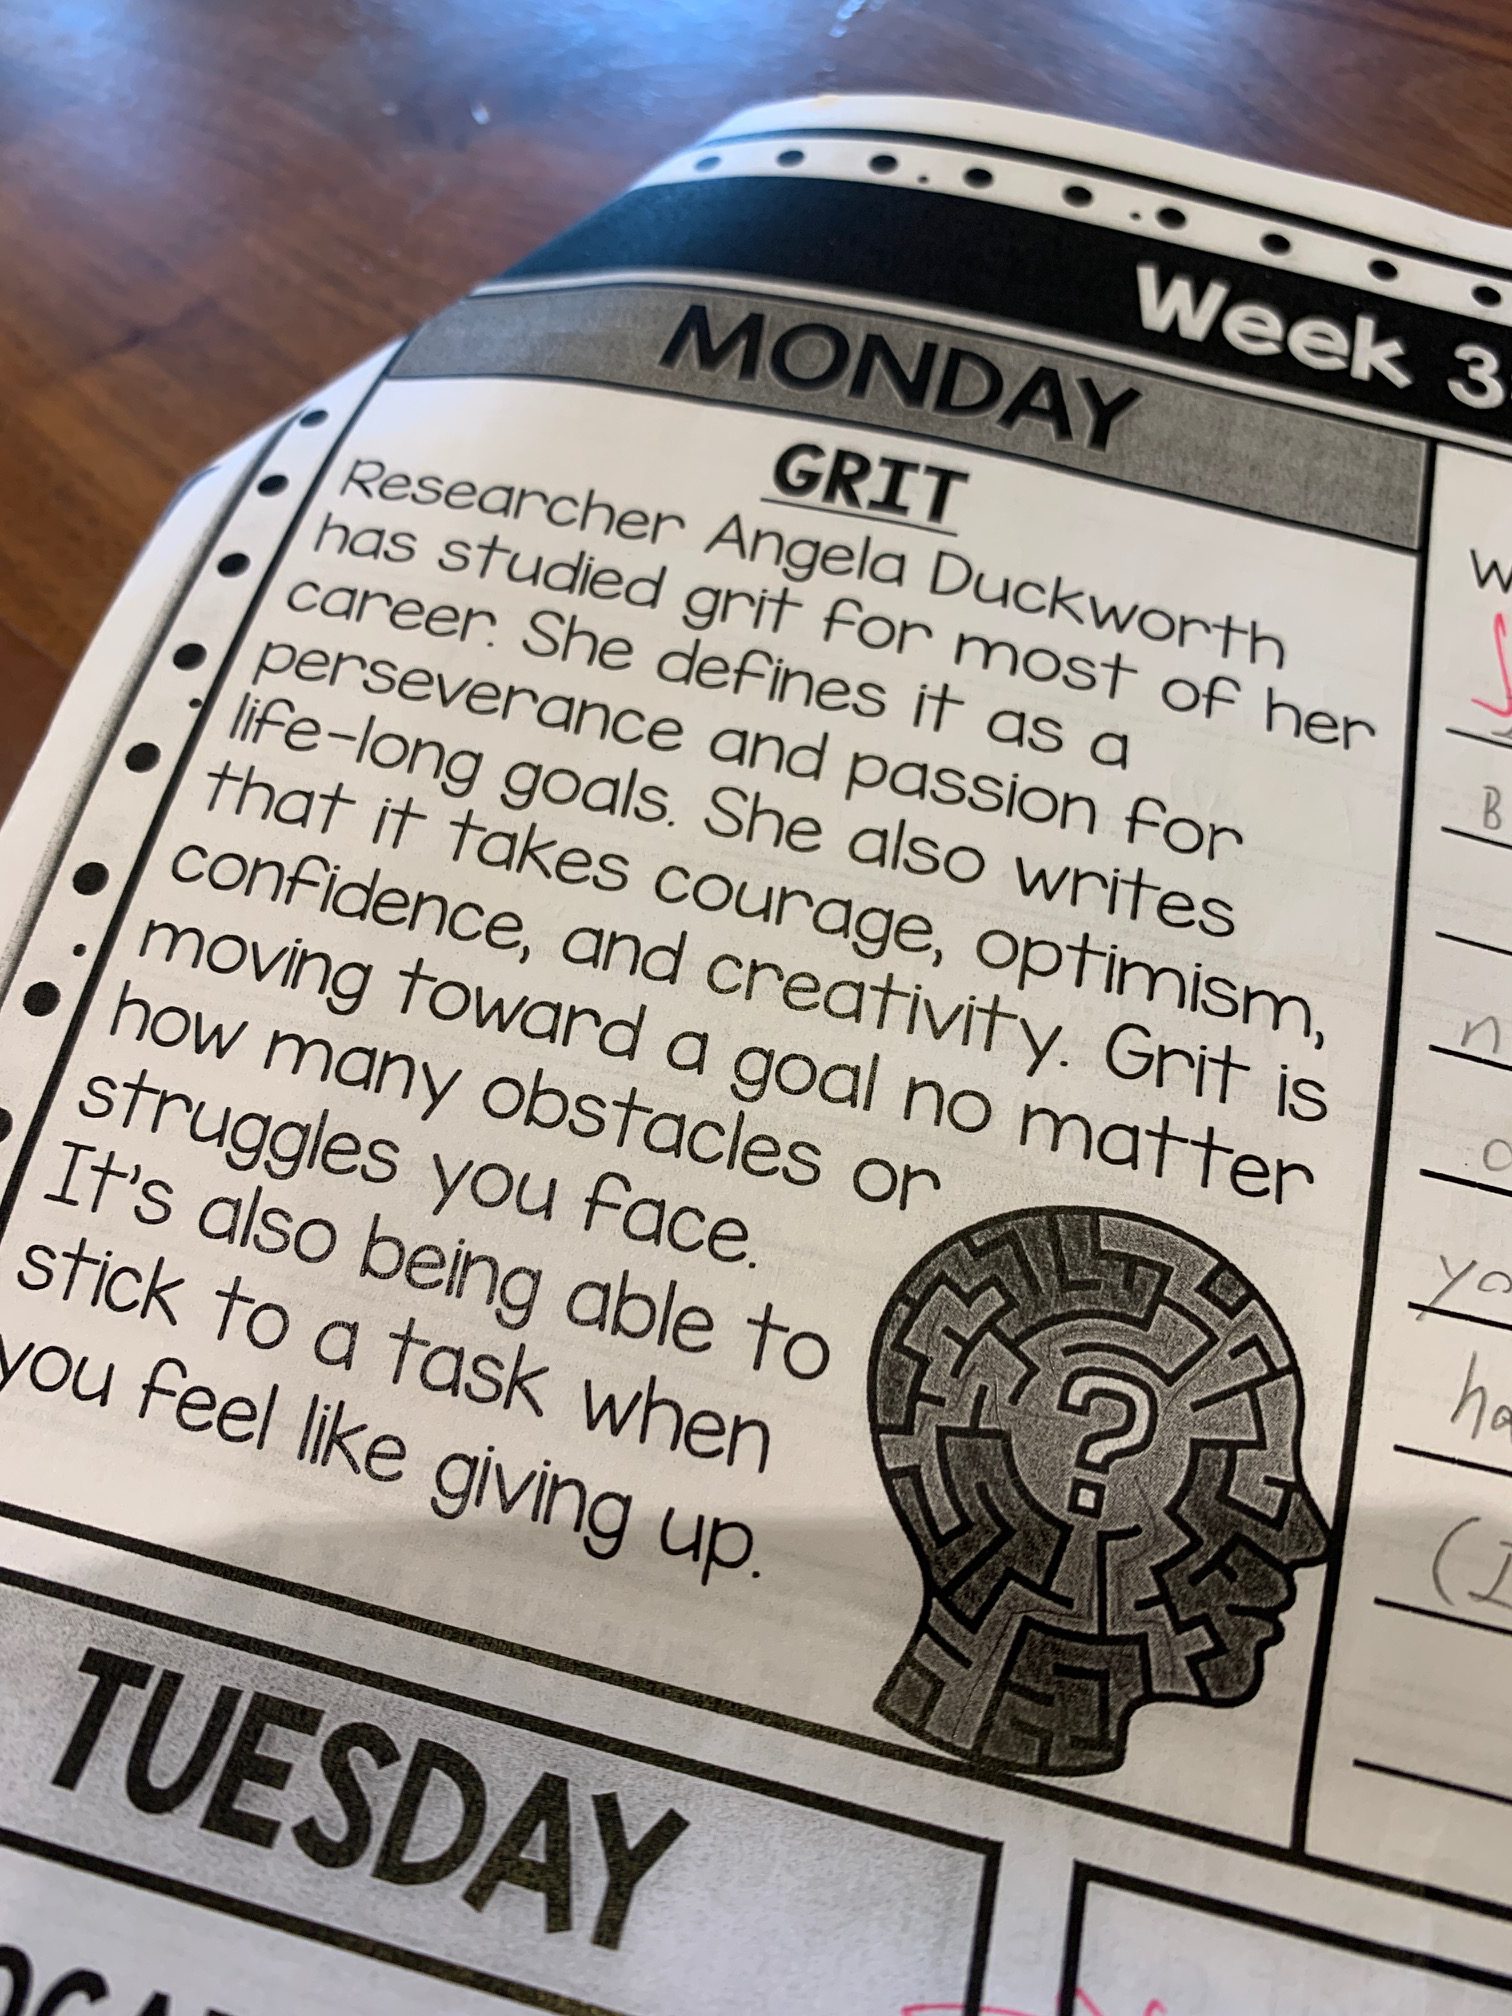 Week 3
MONDAY
GRIT
Researcher Angela Duckworth
has studied grit for most of her
career. She defines it as a
perseverance and passion for
life-long goals. She also writes
that it takes courage, optimism,
confidence, and creativity. Grit is
moving toward a goal no matter
how many obstacles or
struggles you face.
It's also being able to
stick to a task when
you feel like giving up.
?
TUESDAY